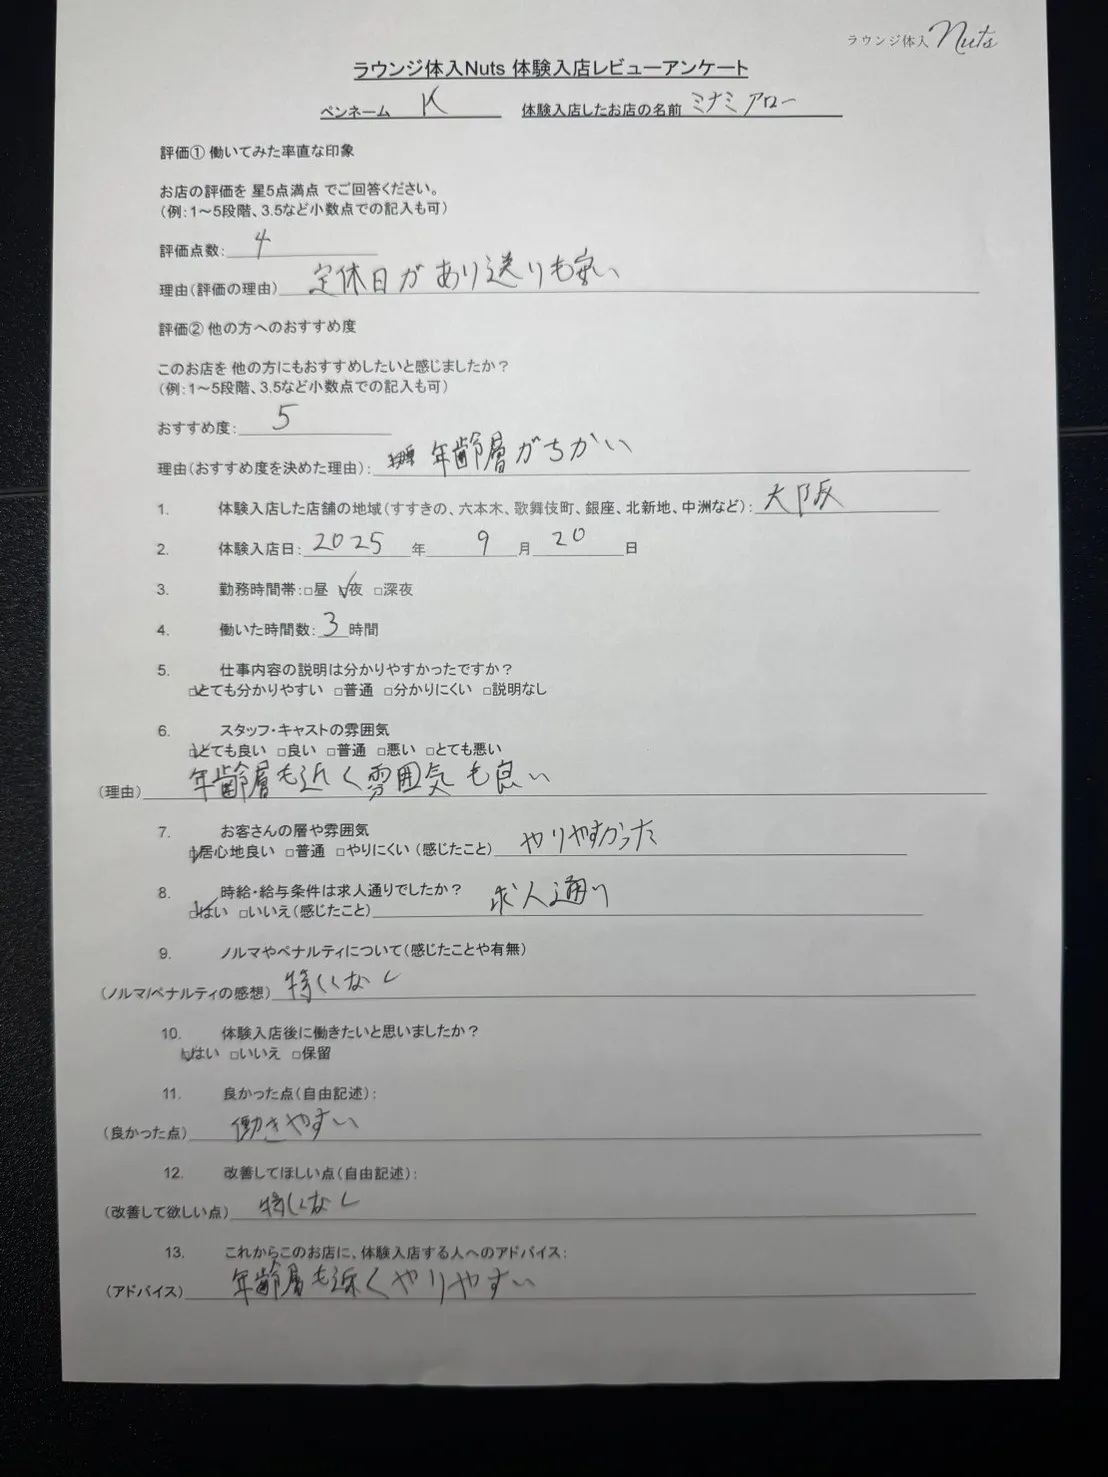 ラウンジ体入 Nuts
ラウンジ体入Nuts 体験入店レビューアンケート
ペンネーム K 体験入店したお店の名前 ミナミ アロー
評価① 働いてみた率直な印象
お店の評価を 星5点満点 でご回答ください。
（例：1～5段階、3.5など小数点での記入も可）
評価点数： 4
理由（評価の理由） 定休日が あり送りも安い
評価② 他の方へのおすすめ度
このお店を 他の方にもおすすめしたいと感じましたか？
（例：1～5段階、3.5など小数点での記入も可）
おすすめ度： 5
理由（おすすめ度を決めた理由）： 年齢層がちかい
1. 体験入店した店舗の地域（すすきの、六本木、歌舞伎町、銀座、北新地、中洲など）： 大阪
2. 体験入店日： 2025 年 9 月 20 日
3. 勤務時間帯：□昼 ☑夜 □深夜
4. 働いた時間数： 3 時間
5. 仕事内容の説明は分かりやすかったですか？
☑とても分かりやすい □普通 □分かりにくい □説明なし
6. スタッフ・キャストの雰囲気
☑とても良い □良い □普通 □悪い □とても悪い
（理由） 年齢層も近く雰囲気も良い
7. お客さんの層や雰囲気
☑居心地良い □普通 □やりにくい （感じたこと） やりやすかった
8. 時給・給与条件は求人通りでしたか？
☑はい □いいえ（感じたこと） 求人通り
9. ノルマやペナルティについて（感じたことや有無）
（ノルマ/ペナルティの感想） 特になし
10. 体験入店後に働きたいと思いましたか？
☑はい □いいえ □保留
11. 良かった点（自由記述）：
（良かった点） 働きやすい
12. 改善してほしい点（自由記述）：
（改善して欲しい点） 特になし
13. これからこのお店に、体験入店する人へのアドバイス：
（アドバイス） 年齢層も近くやりやすい